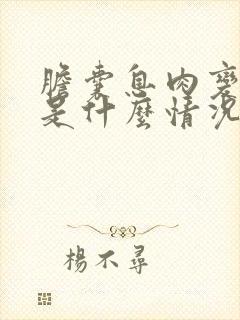 膽囊息肉變
是什麼情況
楊不尋